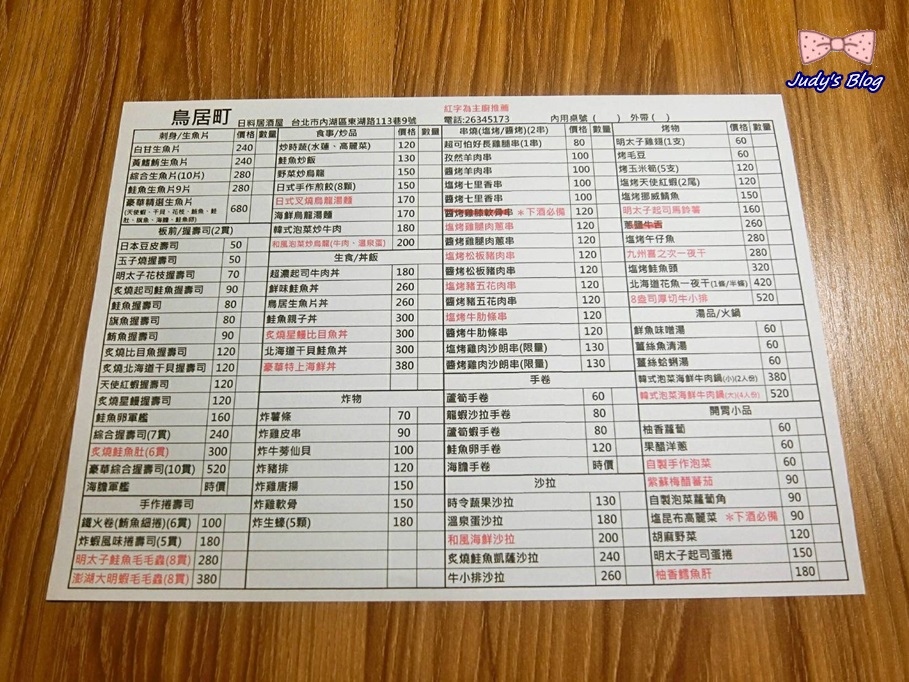 Judy's Blog
鳥居町
日料居酒屋 台北市內湖區東湖路113巷9號
紅字為主廚推薦
電話:26345173 內用桌號( ) 外帶( )
刺身/生魚片 價格 數量
白甘生魚片 240
黃鰭鮪生魚片 240
綜合生魚片(10片) 280
鮭魚生魚片9片 280
豪華精選生魚片 680
(天使蝦、干貝、花枝、鮪魚、鮭
肚、旗魚、海鱺、鮭魚卵)
板前/握壽司(2貫)
日本豆皮壽司 50
玉子燒壽司 50
明太子花枝握壽司 70
炙燒起司鮭魚握壽司 90
鮭魚握壽司 80
旗魚握壽司 80
鮪魚握壽司 90
炙燒比目魚握壽司 120
炙燒北海道干貝握壽司 120
天使紅蝦握壽司 120
炙燒星鰻握壽司 120
鮭魚卵軍艦 160
綜合握壽司(7貫) 240
炙燒鮭魚肚(6貫) 300
豪華綜合握壽司(10貫) 520
海膽軍艦 時價
手作捲壽司
鐵火卷(鮪魚細捲)(6貫) 100
炸蝦風味捲壽司(5貫) 180
明太子鮭魚毛毛蟲(8貫) 280
澎湖大明蝦毛毛蟲(8貫) 380
食事/炒品 價格 數量
炒時蔬(水蓮、高麗菜) 120
鮭魚炒飯 130
野菜炒烏龍 150
日式手作煎餃(8顆) 150
日式叉燒烏龍湯麵 170
海鮮烏龍湯麵 170
韓式泡菜炒牛肉 180
和風泡菜炒烏龍(牛肉、溫泉蛋) 200
生食/丼飯
超濃起司牛肉丼 180
鮮味鮭魚丼 260
鳥居生魚片丼 260
鮭魚親子丼 300
炙燒星鰻比目魚丼 300
北海道干貝鮭魚丼 300
豪華特上海鮮丼 380
炸物
炸薯條 70
炸雞皮串 90
炸牛蒡仙貝 100
炸豬排 120
炸雞唐揚 150
炸雞軟骨 150
炸生蠔(5顆) 180
串燒(塩烤/醬烤)(2串) 價格 數量
超可怕好長雞腿串(1串) 80
孜然羊肉串 100
醬烤羊肉串 100
塩烤七里香串 100
醬烤七里香串 100
醬烤雞腿軟骨串 *下酒必備 120
塩烤雞腿肉蔥串 120
醬烤雞腿肉蔥串 120
塩烤松板豬肉串 120
醬烤松板豬肉串 120
塩烤豬五花肉串 120
醬烤豬五花肉串 120
塩烤牛肋條串 120
醬烤牛肋條串 120
塩烤雞肉沙朗串(限量) 130
醬烤雞肉沙朗串(限量) 130
手卷
蘆筍手卷 60
龍蝦沙拉手卷 80
蘆筍蝦手卷 80
鮭魚卵手卷 120
海膽手卷 時價
沙拉
時令蔬果沙拉 130
溫泉蛋沙拉 180
和風海鮮沙拉 200
炙燒鮭魚凱薩沙拉 240
牛小排沙拉 260
烤物 價格 數量
明太子雞翅(1支) 60
烤毛豆 60
烤玉米筍(5支) 120
塩烤天使紅蝦(2尾) 120
塩烤挪威鯖魚 150
明太子起司馬鈴薯 160
蔥鹽牛舌 260
塩烤午仔魚 280
九州喜之次一夜干 280
塩烤鮭魚頭 320
北海道花魚一夜干(1條/半條) 420
8盎司厚切牛小排 520
湯品/火鍋
鮮魚味噌湯 60
薑絲魚清湯 60
薑絲蛤蜊湯 60
韓式泡菜海鮮牛肉鍋(小)(2人份) 380
韓式泡菜海鮮牛肉鍋(大)(4人份) 520
開胃小品
柚香蘿蔔 60
果醋洋蔥 60
自製手作泡菜 60
紫蘇梅醋蕃茄 90
自製泡菜蘿蔔角 90
塩昆布高麗菜 *下酒必備 90
胡麻野菜 120
明太子起司蛋捲 150
柚香鱈魚肝 180